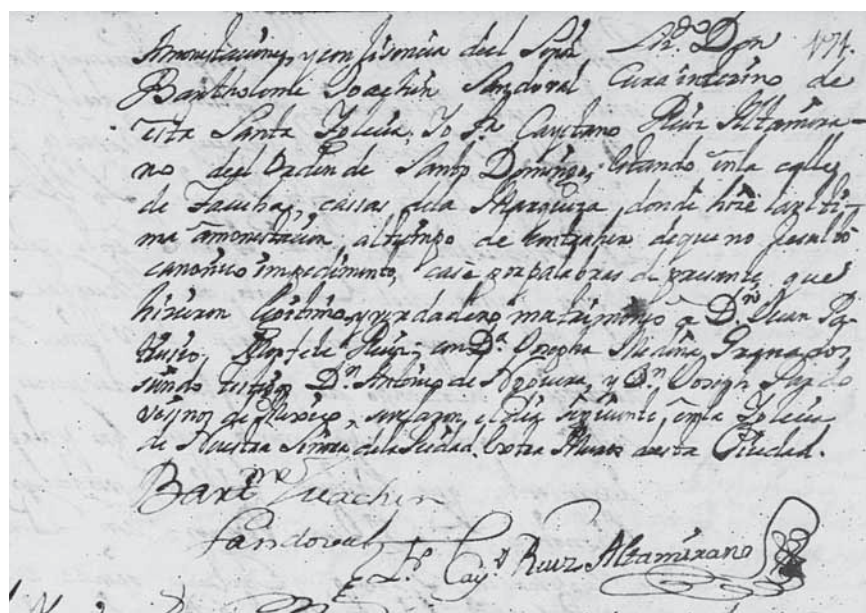 Amonestaciones, y con lisencia del Señor Lizdo Don 174.
Bartholome Joachin Sandoval Cura interino de
esta Santa Iglecia, Yo Fr Cayetano Ruiz Altamira-
no del Orden de Santo Domingo, Estando en la calle
de Tacuba, cassas de la Marqueza, donde hize la ulti-
ma amonestacion, al tiempo de contraher de que no resultó
canonico impedimento, casé por palabras de presente, que
hizieron lexitimo, y verdadero matrimonio â Dn Juan Pa
Ruiz; con Da Josepha Medina,
siendo testigos Dn Antonio de Noguera, y Dn Joseph Pardo
vezinos de Mexico, el dia siguiente, en la Iglecia
de Nuestra Señora de la Piedad Extra Muros desta Ciudad.
Bartme Juachin
Sandoval
Fr Cayo Ruiz Altamirano